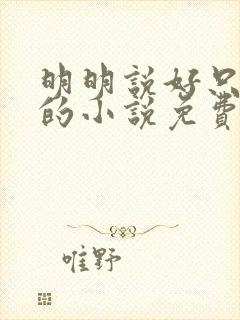 明明說好只
的小說免費
唯野